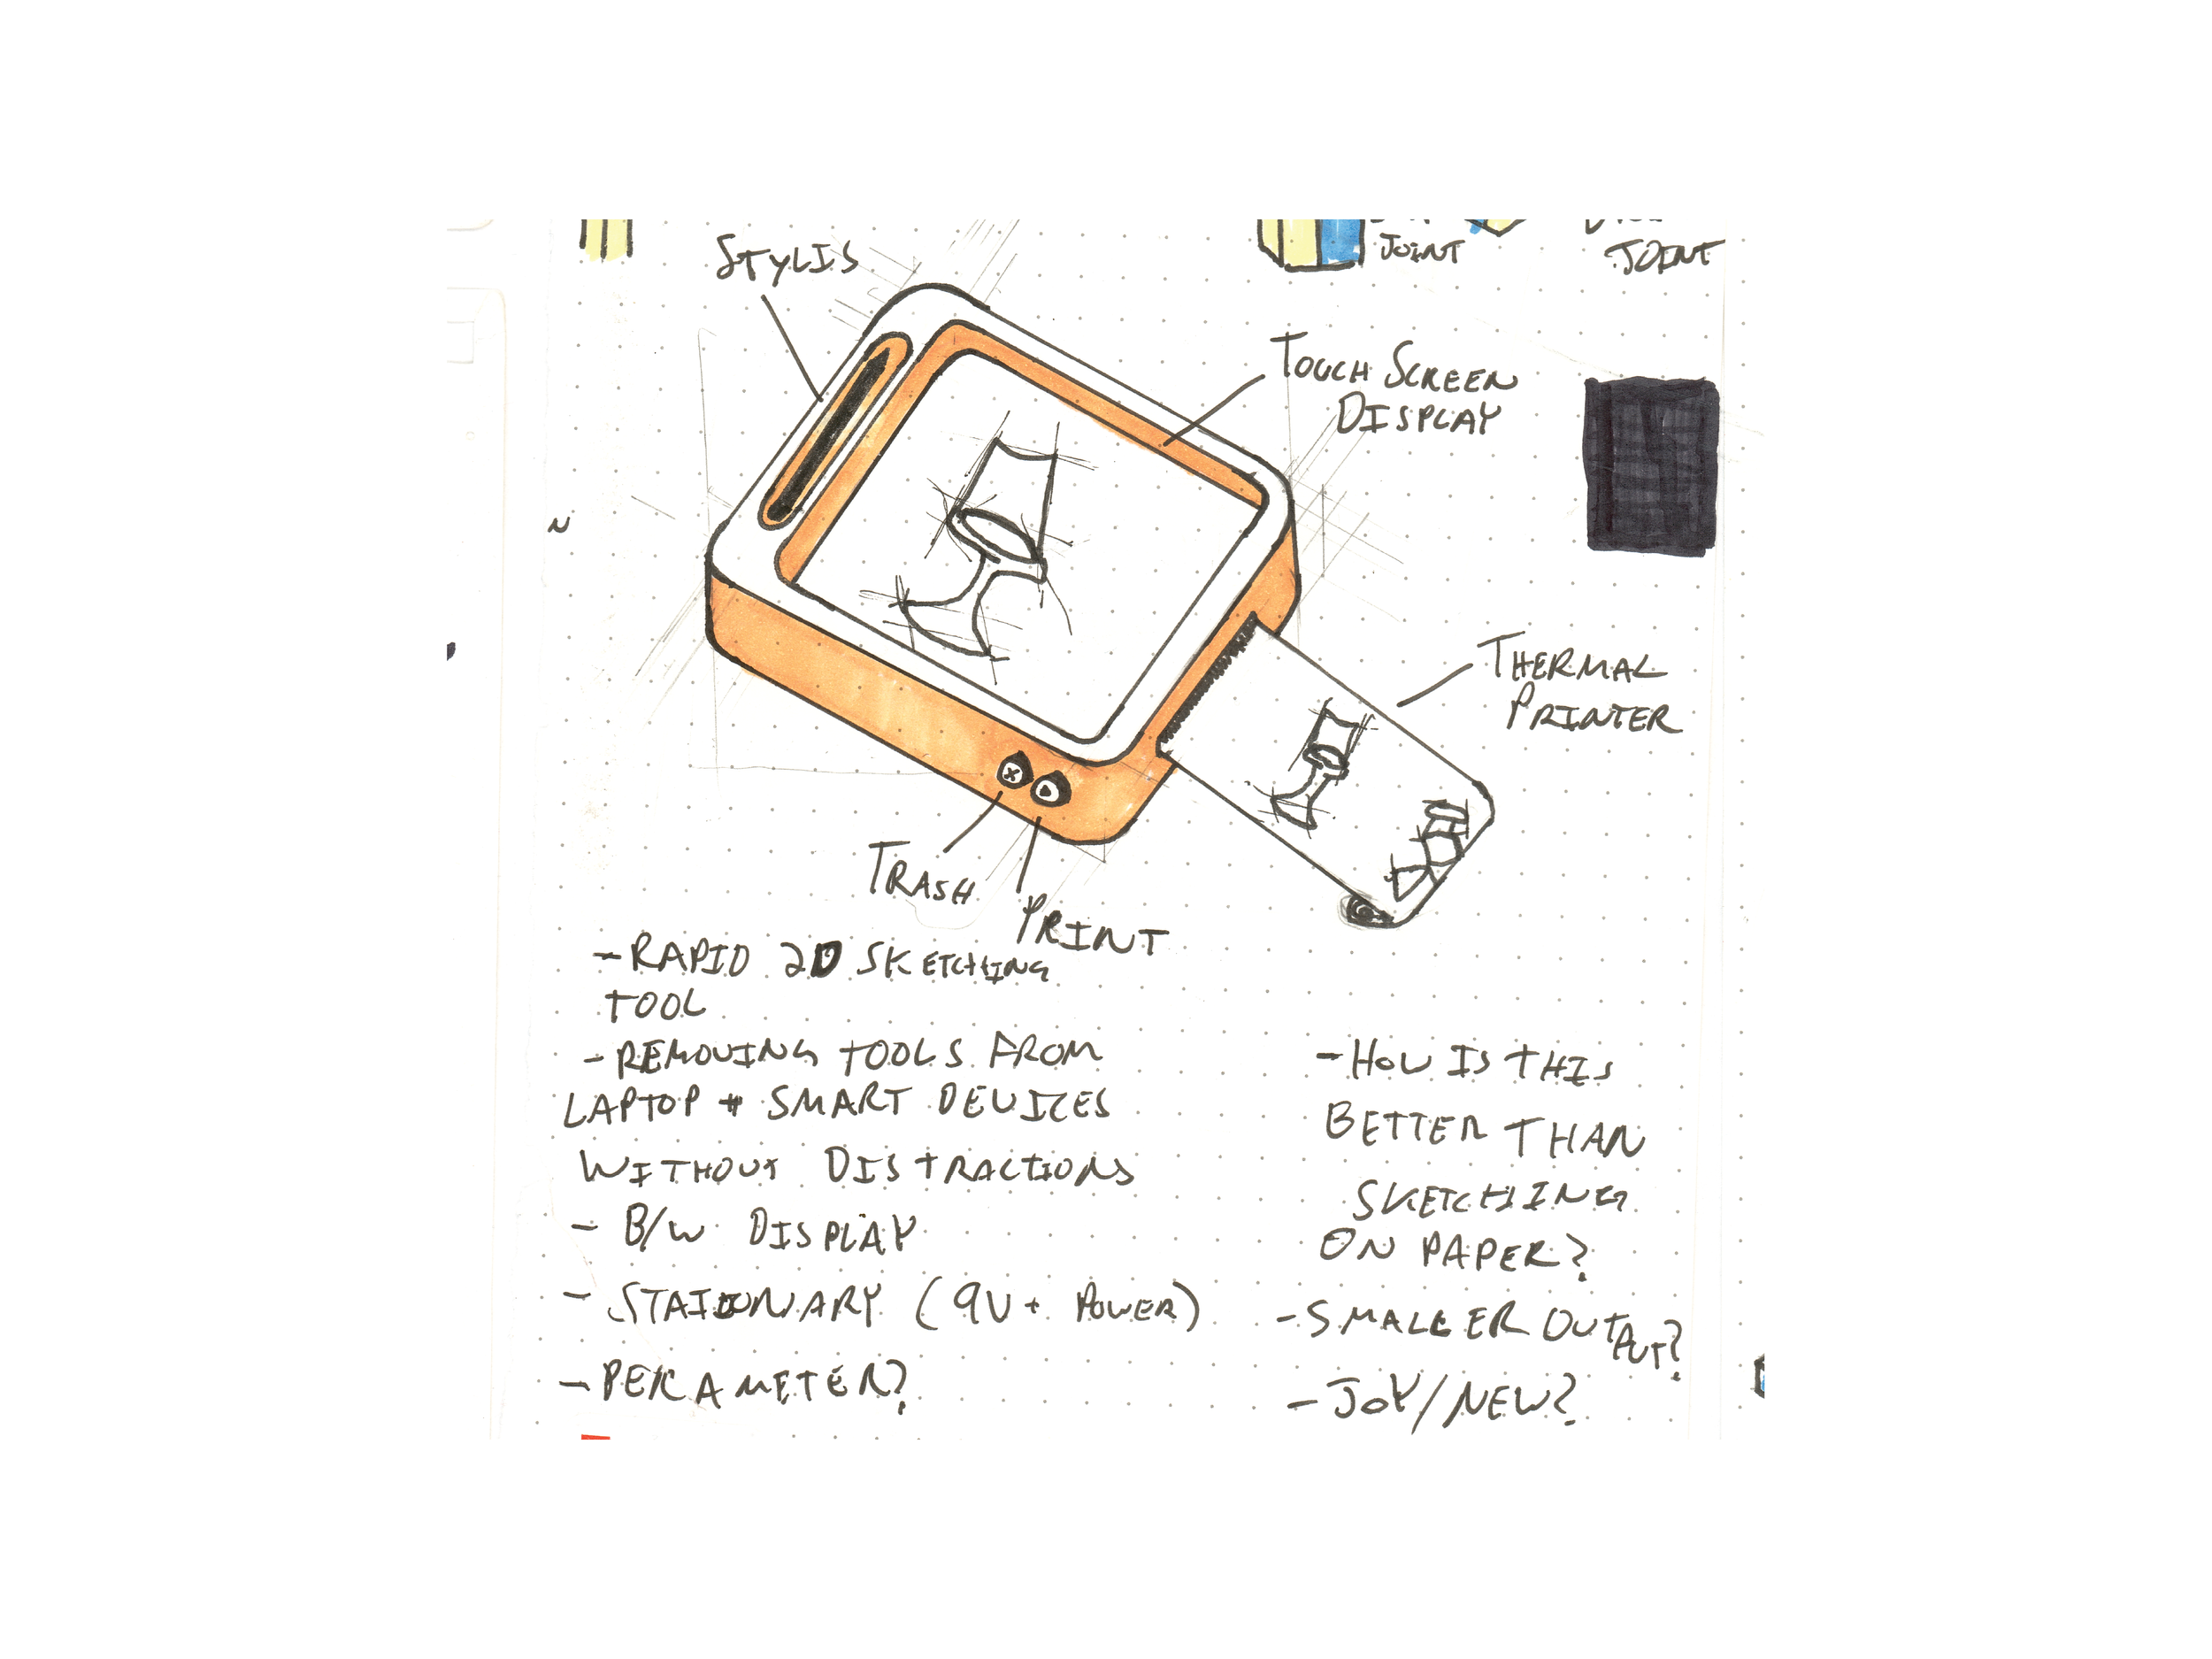 STYLIS
JOINT
JOINT
TOUCH SCREEN
DISPLAY
N
THERMAL
PRINTER
TRASH
PRINT
- RAPID 2D SKETCHING
TOOL
- REMOVING TOOLS FROM
LAPTOP + SMART DEVICES
WITHOUT DISTRACTIONS
- B/W DISPLAY
- STATIONARY (9V + POWER)
- PERAMETER?
- HOW IS THIS
BETTER THAN
SKETCHING
ON PAPER?
- SMALLER OUTPUT?
- JOY/NEW?